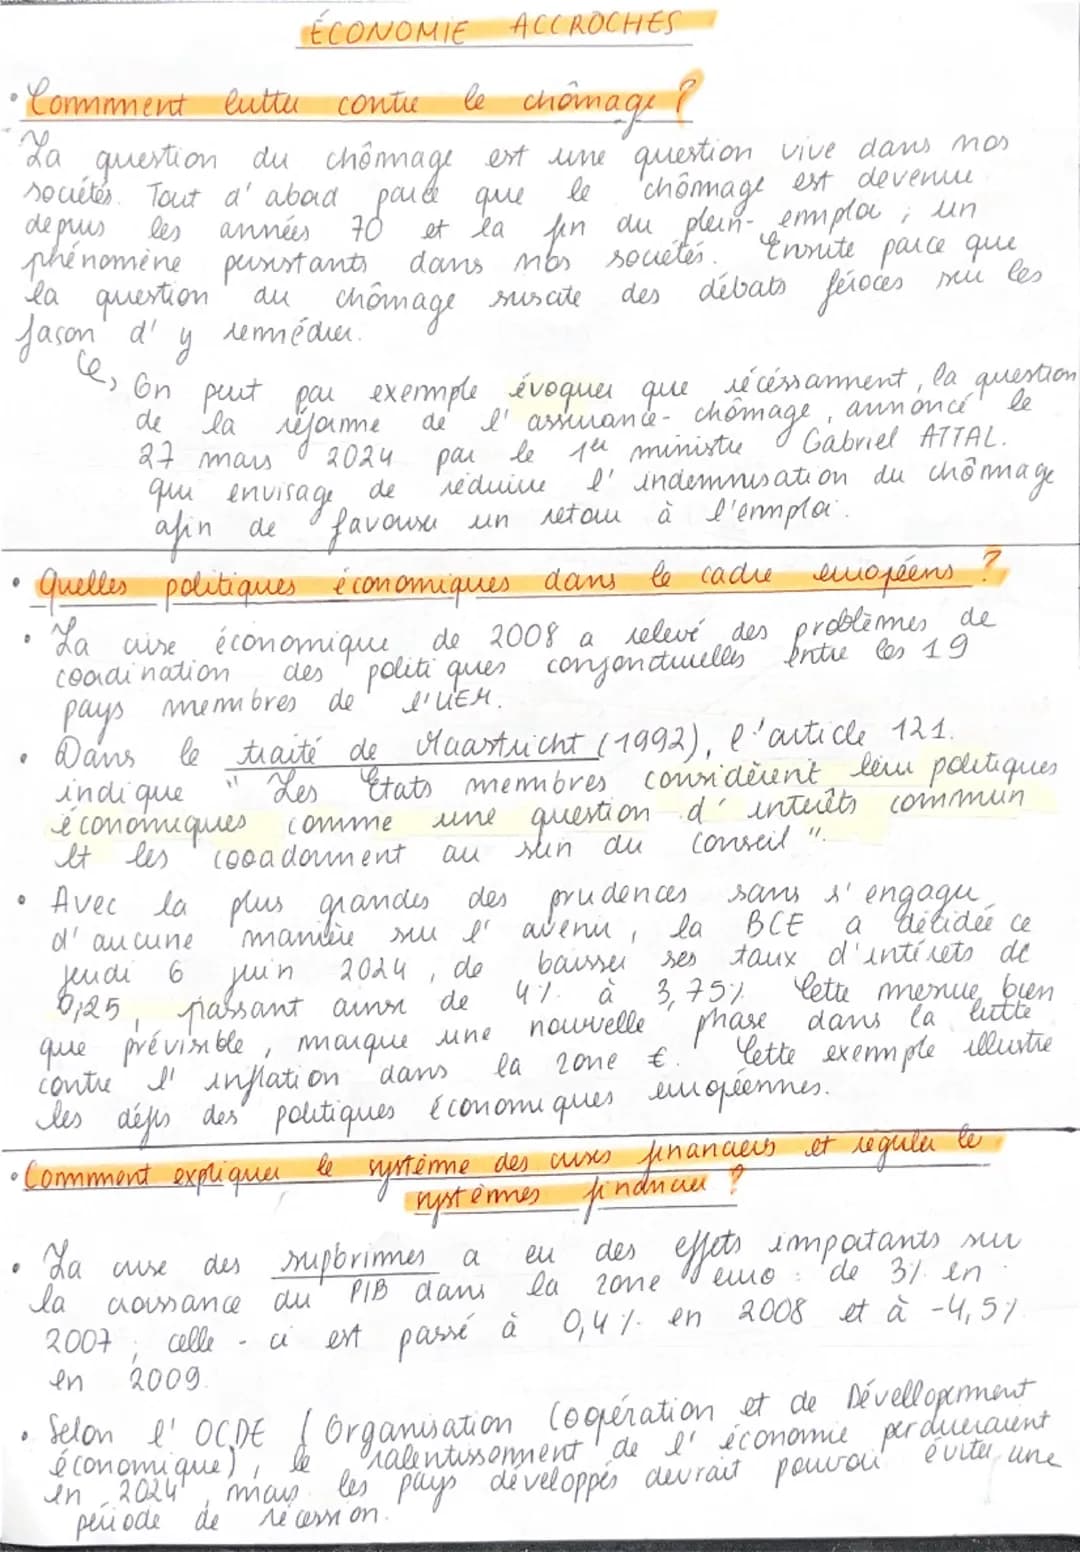 ÉCONOMIE ACCROCHES
• Comment lutter contre le chômage ?
La question du chômage est une question vive dans nos
sociétés. Tout d'abord parce que le chômage est devenue
depuis les années 70 et la fin du plein-emploi ; un
phénomène persistants dans nos sociétés. Ensuite parce que
la question du chômage suscite des débats féroces sur les
façon d'y remédier.
↳ On peut par exemple évoquer que récéssamment, la question
de la réforme de l'assurance-chômage, annoncé le
27 mars 2024 par le 1er ministre Gabriel ATTAL.
qui envisage de réduire l'indemnisation du chômage
afin de favoriser un retour à l'emploi.
• Quelles politiques économiques dans le cadre européens ?
• La crise économique de 2008 a relevé des problèmes de
coordination des politiques conjoncturelles entre les 19
pays membres de l'UEM.
• Dans le traité de Maastricht (1992), l'article 121.
indique " Les États membres considèrent leur politiques
économiques comme une question d'interêts commun
et les cooadonnent au sein du conseil ".
• Avec la plus grandes des prudences sans s'engager
d'aucune manière sur l'avenir, la BCE a décidée ce
jeudi 6 juin 2024, de baisser ses taux d'intérets de
0,25, passant ainsi de 4% à 3,75%. Cette mesure bien
que prévisible, marque une nouvelle phase dans la lutte
contre l'inflation dans la zone €. Cette exemple illustre
les défis des politiques économiques européennes.
• Comment expliquer le système des crises financiers et réguler le
systèmes financier ?
• La crise des supbrimes a eu des effets impotants sur
la croissance du PIB dans la zone euro : de 3% en
2007 ; celle-ci est passé à 0,4%. en 2008 et à -4,5%
en 2009.
• Selon l'OCDE (Organisation Coopération et de Dévellopement
économique), le ralentissonment de l'économie perdueraient
en 2024, mais les pays développés devrait pouvoir éviter une
période de récession.